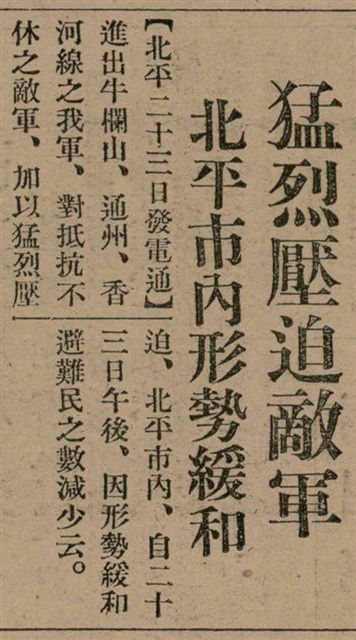 猛烈壓迫敵軍
北平市內形勢緩和
【北平二十三日發電通】
進出牛欄山、通州、香
河線之我軍、對抵抗不
休之敵軍、加以猛烈壓
迫、北平市內、自二十
三日午後、因形勢緩和
避難民之數減少云。